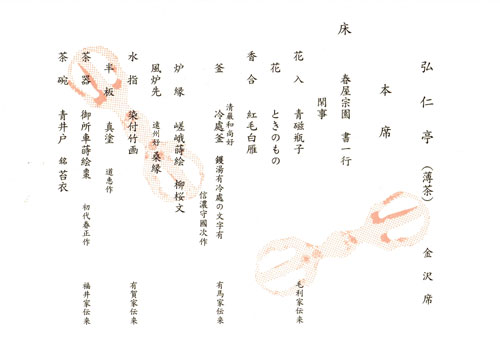 弘仁亭（薄茶）　金沢席
本席
床　春屋宗園　書一行
閑事
花入　青磁瓶子　毛利家伝来
花　ときのもの
香合　紅毛白雁
清巌和尚好
釜　冷處釜　鑊湯有冷處の文字有　有馬家伝来
信濃守國次作
炉縁　嵯峨蒔絵　柳桜文
風炉先　遠州好　桑縁
水指　染付竹画　有賀家伝来
半板　真塗　道恵作
茶器　御所車蒔絵棗　初代春正作　福井家伝来
茶碗　青井戸　銘　苔衣